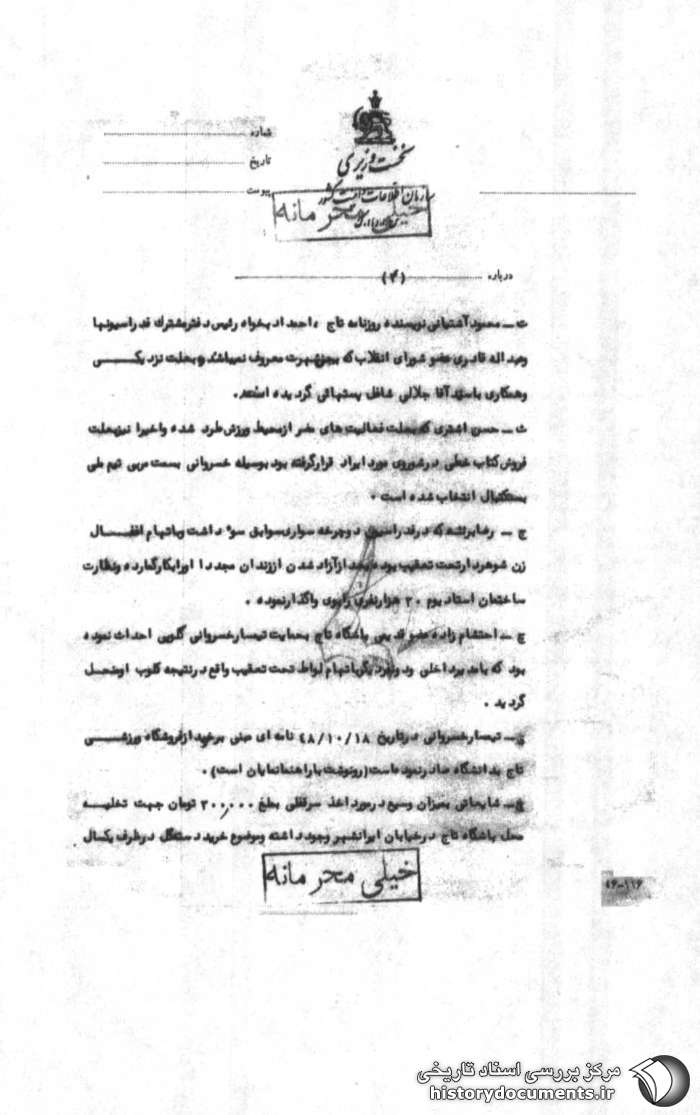 شماره
تاریخ
پیوست
نخست وزیری
سازمان اطلاعات و امنیت کشور
خیلی محرمانه
درباره (۴)
ت ــ محمود آشتیانی نویسنده روزنامه تاج ، احمد ادبخواه رئیس دفتر مشترک فدراسیونها
وعبداله قادری عضو شورای انقلاب که بحسن شهرت معروف نمیباشند بعلت نزدیکـــی
وهمکاری باسیدآقا جلالی شاغل پستهائی گردیده است.
ث ــ حسن اشتری که بعلت فعالیت های مضر ازمحیط ورزش طرد شده واخیرا نیزبعلت
فروش کتاب خطی درشوروی مورد ایراد قرارگرفته بود بوسیله خسروانی بسمت مربی تیم ملی
بسکتبال انتخاب شده است .
ج ــ که درفدراسیون دوچرخه سواری سوابق سوء داشت وباتهام اغفـــال
زن شوهردارتحت تعقیب بوده بعد ازآزاد شدن اززندان مجددا اورابکارگمارده ونظارت
ساختمان استادیوم ۳۰ هزارنفری رابوی واگذارنموده .
چ ــ احتشام زاده عضو قدیمی باشگاه تاج بحمایت تیمسارخسروانی کلوپی احداث نموده
بود که باتهام لواط تحت تعقیب واقع درنتیجه کلوب اومنحل
گردید .
ح ــ تیمسارخسروانی درتاریخ ۴۸/۱۰/۱۸ نامه ای مبنی برخرید ازفروشگاه ورزشـــی
تاج بدانشگاه صادرنموده است (رونوشت بارامضانمایان است) .
شایعاتی بمیزان وسیع درمورد اخذ سرقفلی بمبلغ ۳۰۰,۰۰۰ تومان جهت تخلیـــه
محل باشگاه تاج درخیابان ایرانشهر وجود داشته وموضوع خرید درظرف یکسال
خیلی محرمانه
۴۶-۱۱۶
مرکز بررسی اسناد تاریخی
historydocuments.ir